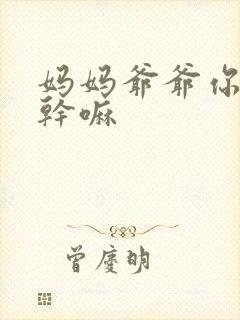 妈妈爷爷你
幹嘛
曾慶明